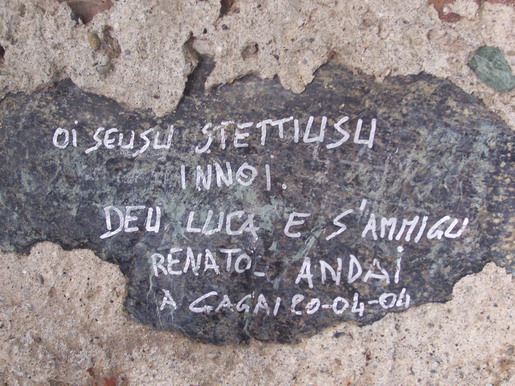 Oi SEUSU STETTIUSU
INNOI.
DEU LUCA E S'AMMIGU
RENATO_ ANDAi
A GAGAI 20-04-04